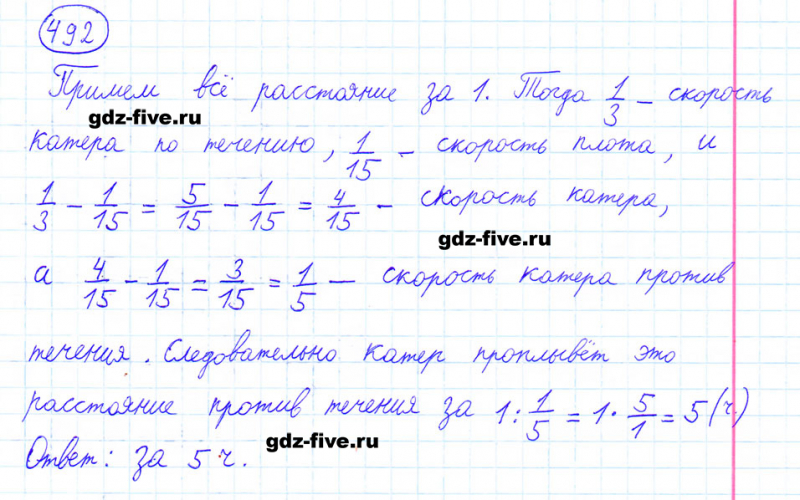 492
Примем всё расстояние за 1. Тогда 1/3 – скорость
gdz-five.ru
катера по течению, 1/15 – скорость плота, и
1/3 – 1/15 = 5/15 – 1/15 = 4/15 – скорость катера,
gdz-five.ru
а 4/15 – 1/15 = 3/15 = 1/5 — скорость катера против
течения. Следовательно катер проплывёт это
расстояние против течения за 1 : 1/5 = 1 · 5/1 = 5 (ч.)
gdz-five.ru
Ответ: за 5 ч.